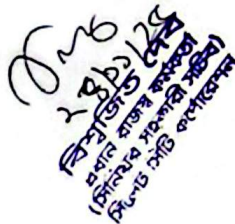 ২৪/০১/২৫
বিশ্বজিত দেব
প্রধান রাজস্ব কর্মকর্তা
(সিনিয়র সহকারী সচিব)
সিলেট সিটি কর্পোরেশন